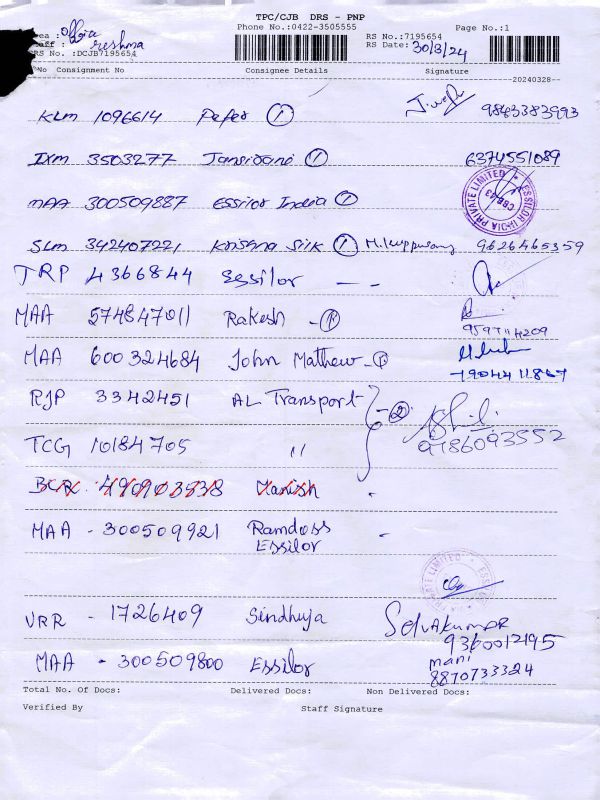 TPC/CJB DRS - PNP
Phone No.:0422-3505555 Page No.:1
Area : Office RS No.:7195654
Staff : reshma RS Date: 30/3/24
DRS No. :DCJB7195654
No Consignment No Consignee Details Signature
20240328
KLM 1096614 Peter ① 9843383993
IXM 3503277 ① 6374551089
MAA 300509887 Essilor India ①
ESSILOR INDIA PRIVATE LIMITED
SLM 342407221 Krishna Silk ① M.Kuppusamy 9626465359
TRP 4366844 Essilor - -
MAA 574847011 Rakesh - ①
MAA 600324684 John Mathew - ① 7904411867
RJP 3342451 AL Transport - ②
TCG 10184705 " 9786093552
BCR 490903838 Manish -
MAA - 300509921 Ramdoss -
Essilor
VRR - 1726409 Sindhuja Selvakumar
9360012195
MAA - 300509800 Essilor Mani
8870733324
Total No. Of Docs: Delivered Docs: Non Delivered Docs:
Verified By Staff Signature